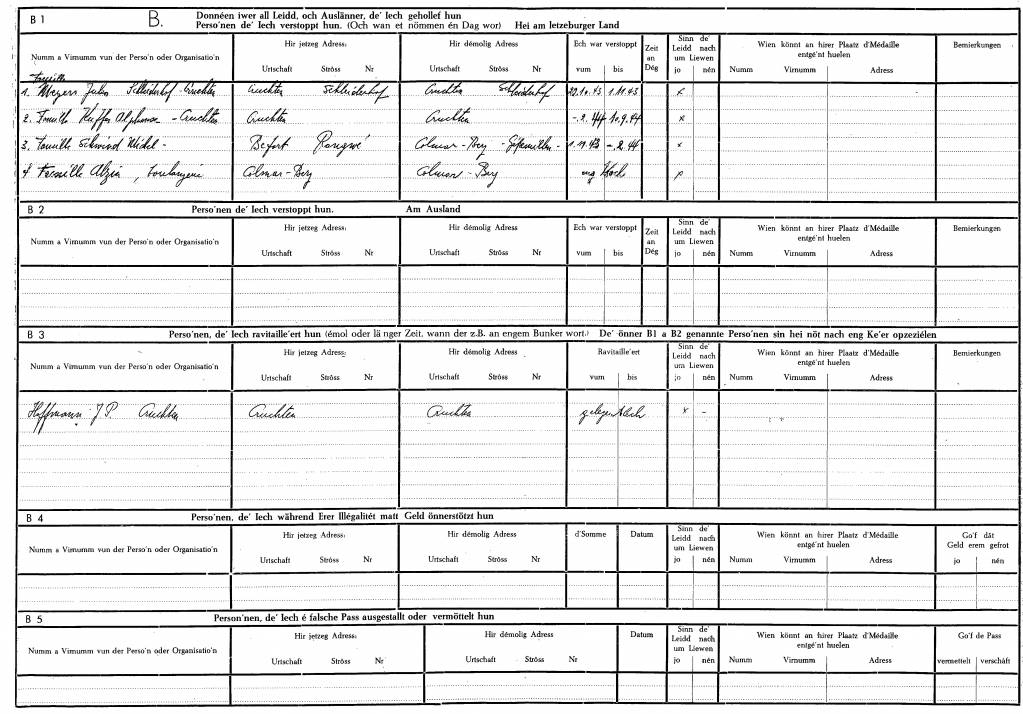 B 1 B. Donnéen iwer all Leidd, och Auslänner, de' Iech gehollef hun
Perso'nen de' Iech verstoppt hun. (Och wan et nömmen én Dag wor) Hei am letzeburger Land
Numm a Virnumm vun der Perso'n oder Organisatio'n
Hir jetzeg Adress:
Urtschaft Ströss Nr
Hir démolig Adress:
Urtschaft Ströss Nr
Ech war verstoppt
vum bis
Zeit
an
Dég
Sinn de'
Leidd nach
um Liewen
jo nén
Wien könnt an hirer Plaatz d'Médaille
entgé'nt huelen
Numm Virnumm Adress
Bemierkungen
Famille
1. Meyers Schleiderhof - Cruchten Cruchten Schleiderhof Cruchten Schleiderhof 20.10.43 1.11.43 x
2. Famille Alphonse - Cruchten Cruchten Cruchten -.2.44 10.9.44 x
3. Famille Schmid Michel - Befort Colmar - Berg 1.11.43 -.2.44 x
4 Famille Colmar - Berg Colmar - Berg eng Woch x
B 2 Perso'nen de' Iech verstoppt hun. Am Ausland
Numm a Virnumm vun der Perso'n oder Organisatio'n
Hir jetzeg Adress:
Urtschaft Ströss Nr
Hir démolig Adress:
Urtschaft Ströss Nr
Ech war verstoppt
vum bis
Zeit
an
Dég
Sinn de'
Leidd nach
um Liewen
jo nén
Wien könnt an hirer Plaatz d'Médaille
entgé'nt huelen
Numm Virnumm Adress
Bemierkungen
B 3 Perso'nen, de' Iech ravitaille'ert hun (émol oder lä nger Zeit, wann der z.B. an engem Bunker wort.) De' önner B1 a B2 genannte Perso'nen sin hei nöt nach eng Ke'er opzeziélen
Numm a Virnumm vun der Perso'n oder Organisatio'n
Hir jetzeg Adress:
Urtschaft Ströss Nr
Hir démolig Adress:
Urtschaft Ströss Nr
Ravitaille'ert
vum bis
Sinn de'
Leidd nach
um Liewen
jo nén
Wien könnt an hirer Plaatz d'Médaille
entgé'nt huelen
Numm Virnumm Adress
Bemierkungen
Hoffmann J P. Cruchten Cruchten Cruchten gelegentlech x -
B 4 Perso'nen, de' Iech während Erer Illégalitét matt Geld önnerstötzt hun
Numm a Virnumm vun der Perso'n oder Organisatio'n
Hir jetzeg Adress:
Urtschaft Ströss Nr
Hir démolig Adress:
Urtschaft Ströss Nr
d'Somme
Datum
Sinn de'
Leidd nach
um Liewen
jo nén
Wien könnt an hirer Plaatz d'Médaille
entgé'nt huelen
Numm Virnumm Adress
Go'f dát
Geld erem gefrot
jo nén
B 5 Person'nen, de' Iech é falsche Pass ausgestallt oder vermöttelt hun
Numm a Virnumm vun der Perso'n oder Organisatio'n
Hir jetzeg Adress:
Urtschaft Ströss Nr
Hir démolig Adress:
Urtschaft Ströss Nr
Datum
Sinn de'
Leidd nach
um Liewen
jo nén
Wien könnt an hirer Plaatz d'Médaille
entgé'nt huelen
Numm Virnumm Adress
Go'f de Pass
vermettelt verscháft